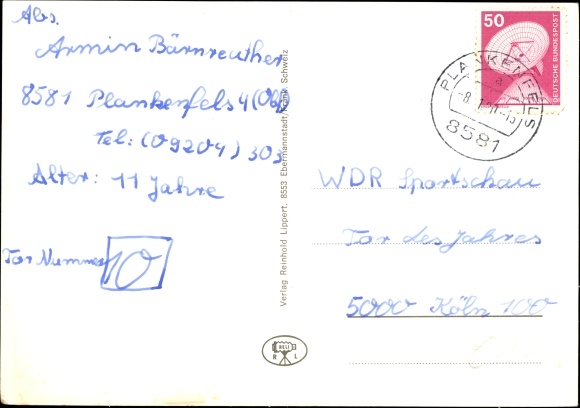 Abs.
Armin Bärnreuther
8581 Plankenfels 4 (Obfr
Tel: (09204) 303
Alter: 11 Jahre
Tor Nummer 10
Verlag Reinhold Lippert, 8553 Ebermannstadt/Fränk. Schweiz
RELI
R L
50
DEUTSCHE BUNDESPOST
PLANKENFELS
8581
WDR Sportschau
Tor des Jahres
5000 Köln 100